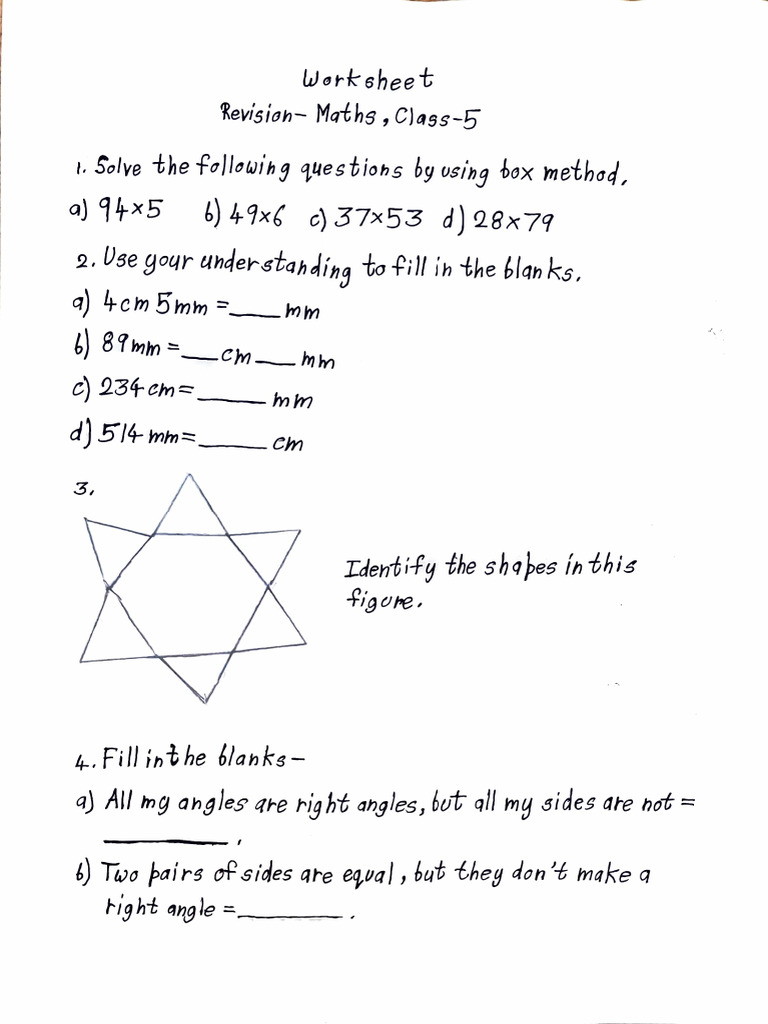 Worksheet
Revision- Maths, Class-5
1. Solve the following questions by using box method.
a) 94×5 b) 49×6 c) 37×53 d) 28×79
2. Use your understanding to fill in the blanks.
a) 4cm 5mm = ____ mm
b) 89mm = ___ cm ___ mm
c) 234 cm = _____ mm
d) 514 mm = _____ cm
3.
Identify the shapes in this
figure.
4. Fill in the blanks-
a) All my angles are right angles, but all my sides are not =
_________.
b) Two pairs of sides are equal, but they don't make a
right angle = ________.